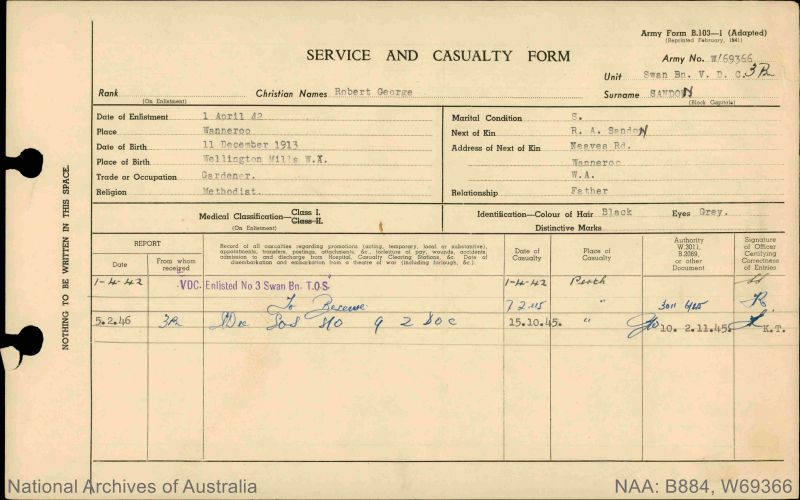 Army Form B.103—1 (Adapted)
(Reprinted February, 1941)
SERVICE AND CASUALTY FORM
Army No. W69366
Unit Swan Bn. V. D. C.
Rank Christian Names Robert George Surname SANDON
(On Enlistment) (Block Capitals)
Date of Enlistment 1 April 42 Marital Condition S.
Place Wanneroo Next of Kin R. A. Sandon
Date of Birth 11 December 1913 Address of Next of Kin Neaves Rd.
Place of Birth Wellington Mills W.X. Wanneroo
Trade or Occupation Gardener. W.A.
Religion Methodist. Relationship Father
Medical Classification— Class I. Class II. Identification—Colour of Hair Black Eyes Grey.
(On Enlistment) Distinctive Marks
REPORT
Date From whom received
Record of all casualties regarding promotions (acting, temporary, local or substantive), appointments, transfers, postings, attachments, &c., forfeiture of pay, wounds, accidents, admission to and discharge from Hospital, Casualty Clearing Stations, &c. Date of disembarkation and embarkation from a theatre of war (including furlough, &c.)
Date of Casualty Place of Casualty
Authority W.3011, B.2069, or other Document
Signature of Officer Certifying Correctness of Entries
1-4-42 VDC. Enlisted No 3 Swan Bn. T.O.S. 1-4-42 Perth
To Reserve "
5.2.46 15.10.45. " 10. 2.11.45. K.T.
NOTHING TO BE WRITTEN IN THIS SPACE.
National Archives of Australia NAA: B884, W69366